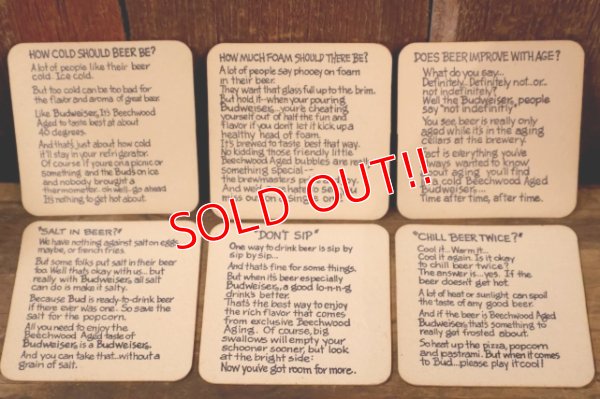 HOW COLD SHOULD BEER BE?
A lot of people like their beer
cold. Ice cold.
But too cold can be too bad for
the flavor and aroma of great beer.
Like Budweiser. It's Beechwood
Aged to taste best at about
40 degrees.
And that's just about how cold
it'll stay in your refrigerator.
Of course if you're on a picnic or
something and the Bud's on ice
and nobody brought a
thermometer... oh well-go ahead
It's nothing to get hot about.
HOW MUCH FOAM SHOULD THERE BE?
A lot of people say phooey on foam
in their beer.
They want that glass full up to the brim.
But hold it-when your pouring
Budweiser...you're cheating
yourself out of half the fun and
flavor if you don't let it kick up a
healthy head of foam.
It's brewed to taste best that way.
No kidding those friendly little
Beechwood Aged bubbles are really
something special--
the brewmasters pride and joy.
And we'd hate to see you
miss out on a single one!
DOES BEER IMPROVE WITH AGE?
What do you say...
Definitely. Definitely not..or..
not indefinitely?
Well the Budweiser people
say "not indefinitely"
You see, beer is really only
aged while it's in the aging
cellars at the brewery.
is everything you've
always wanted to know
about aging you'll find
a cold Beechwood Aged
Budweiser....
Time after time, after time.
SOLD OUT!!
"SALT IN BEER?"
We have nothing against salt on eggs
maybe, or french fries.
But some folks put salt in their beer
too. Well that's okay with us...but
really with Budweiser, all salt
can do is make it salty.
Because Bud is ready-to-drink beer
if there ever was one. So save the
salt for the popcorn.
All you need to enjoy the
Beechwood Aged taste of
Budweiser, is a Budweiser.
And you can take that...without a
grain of salt.
"DON'T SIP"
One way to drink beer is sip by
sip by sip...
And that's fine for some things.
But when its beer especially
Budweiser, a good lo-n-n-g
drink's better.
That's the best way to enjoy
the rich flavor that comes
from exclusive Beechwood
Aging. Of course, big
swallows will empty your
schooner sooner, but look
at the bright side:
Now you've got room for more.
"CHILL BEER TWICE?"
Cool it...Warm it...
Cool it again. Is it okay
to chill beer twice?
The answer is...yes. If the
beer doesn't get hot.
A lot of heat or sunlight can spoil
the taste of any good beer.
And if the beer is Beechwood Aged
Budweiser that's something to
really get frosted about.
So heat up the pizza, popcorn
and pastrami. But when it comes
to Bud...please play it cool!